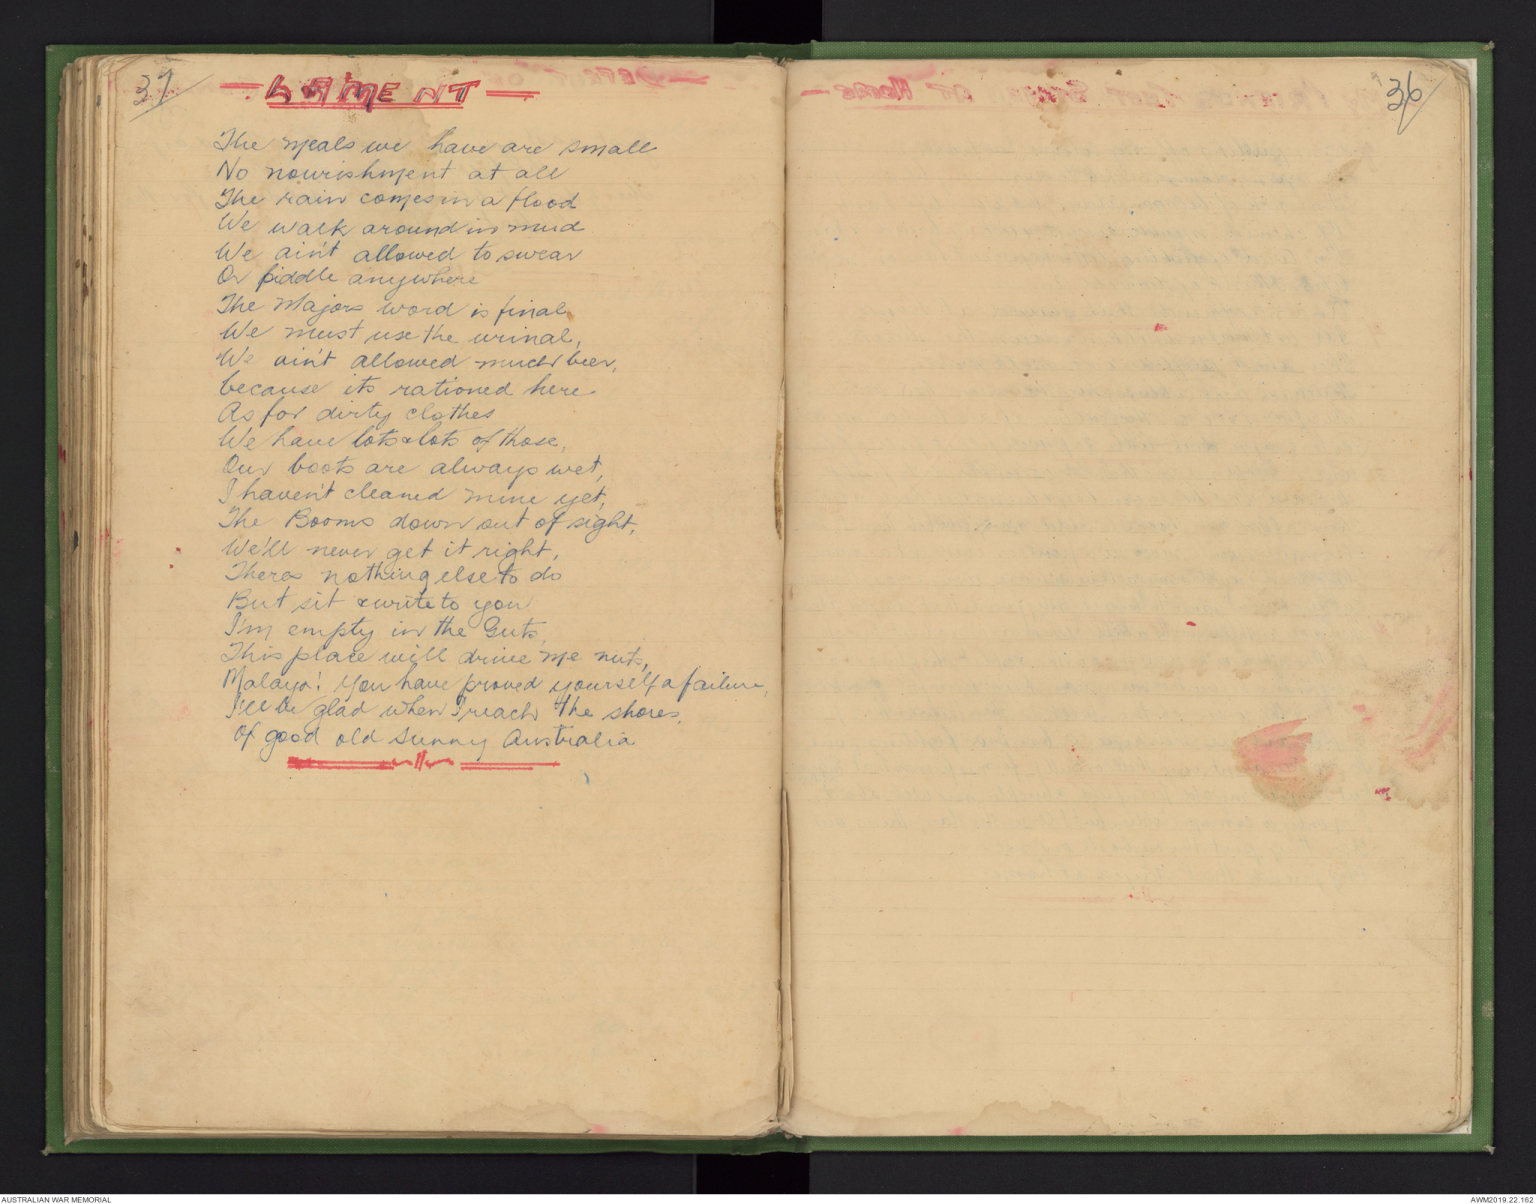 37
LAMENT
The meals we have are small
No nourishment at all
The rain comes in a flood
We walk around in mud
We ain't allowed to swear
Or piddle anywhere
The Majors word is final,
We must use the urinal,
We ain't allowed much beer,
because its rationed here
As for dirty clothes
We have lots & lots of those,
Our boots are always wet,
I haven't cleaned mine yet,
The Booms down out of sight,
We'll never get it right,
Theres nothing else to do
But sit & write to you
I'm empty in the Guts,
This place will drive me nuts,
Malaya! You have proved yourself a failure,
I'll be glad when I reach the shores
Of good old Sunny Australia
36
AUSTRALIAN WAR MEMORIAL
AWM2019.22.162